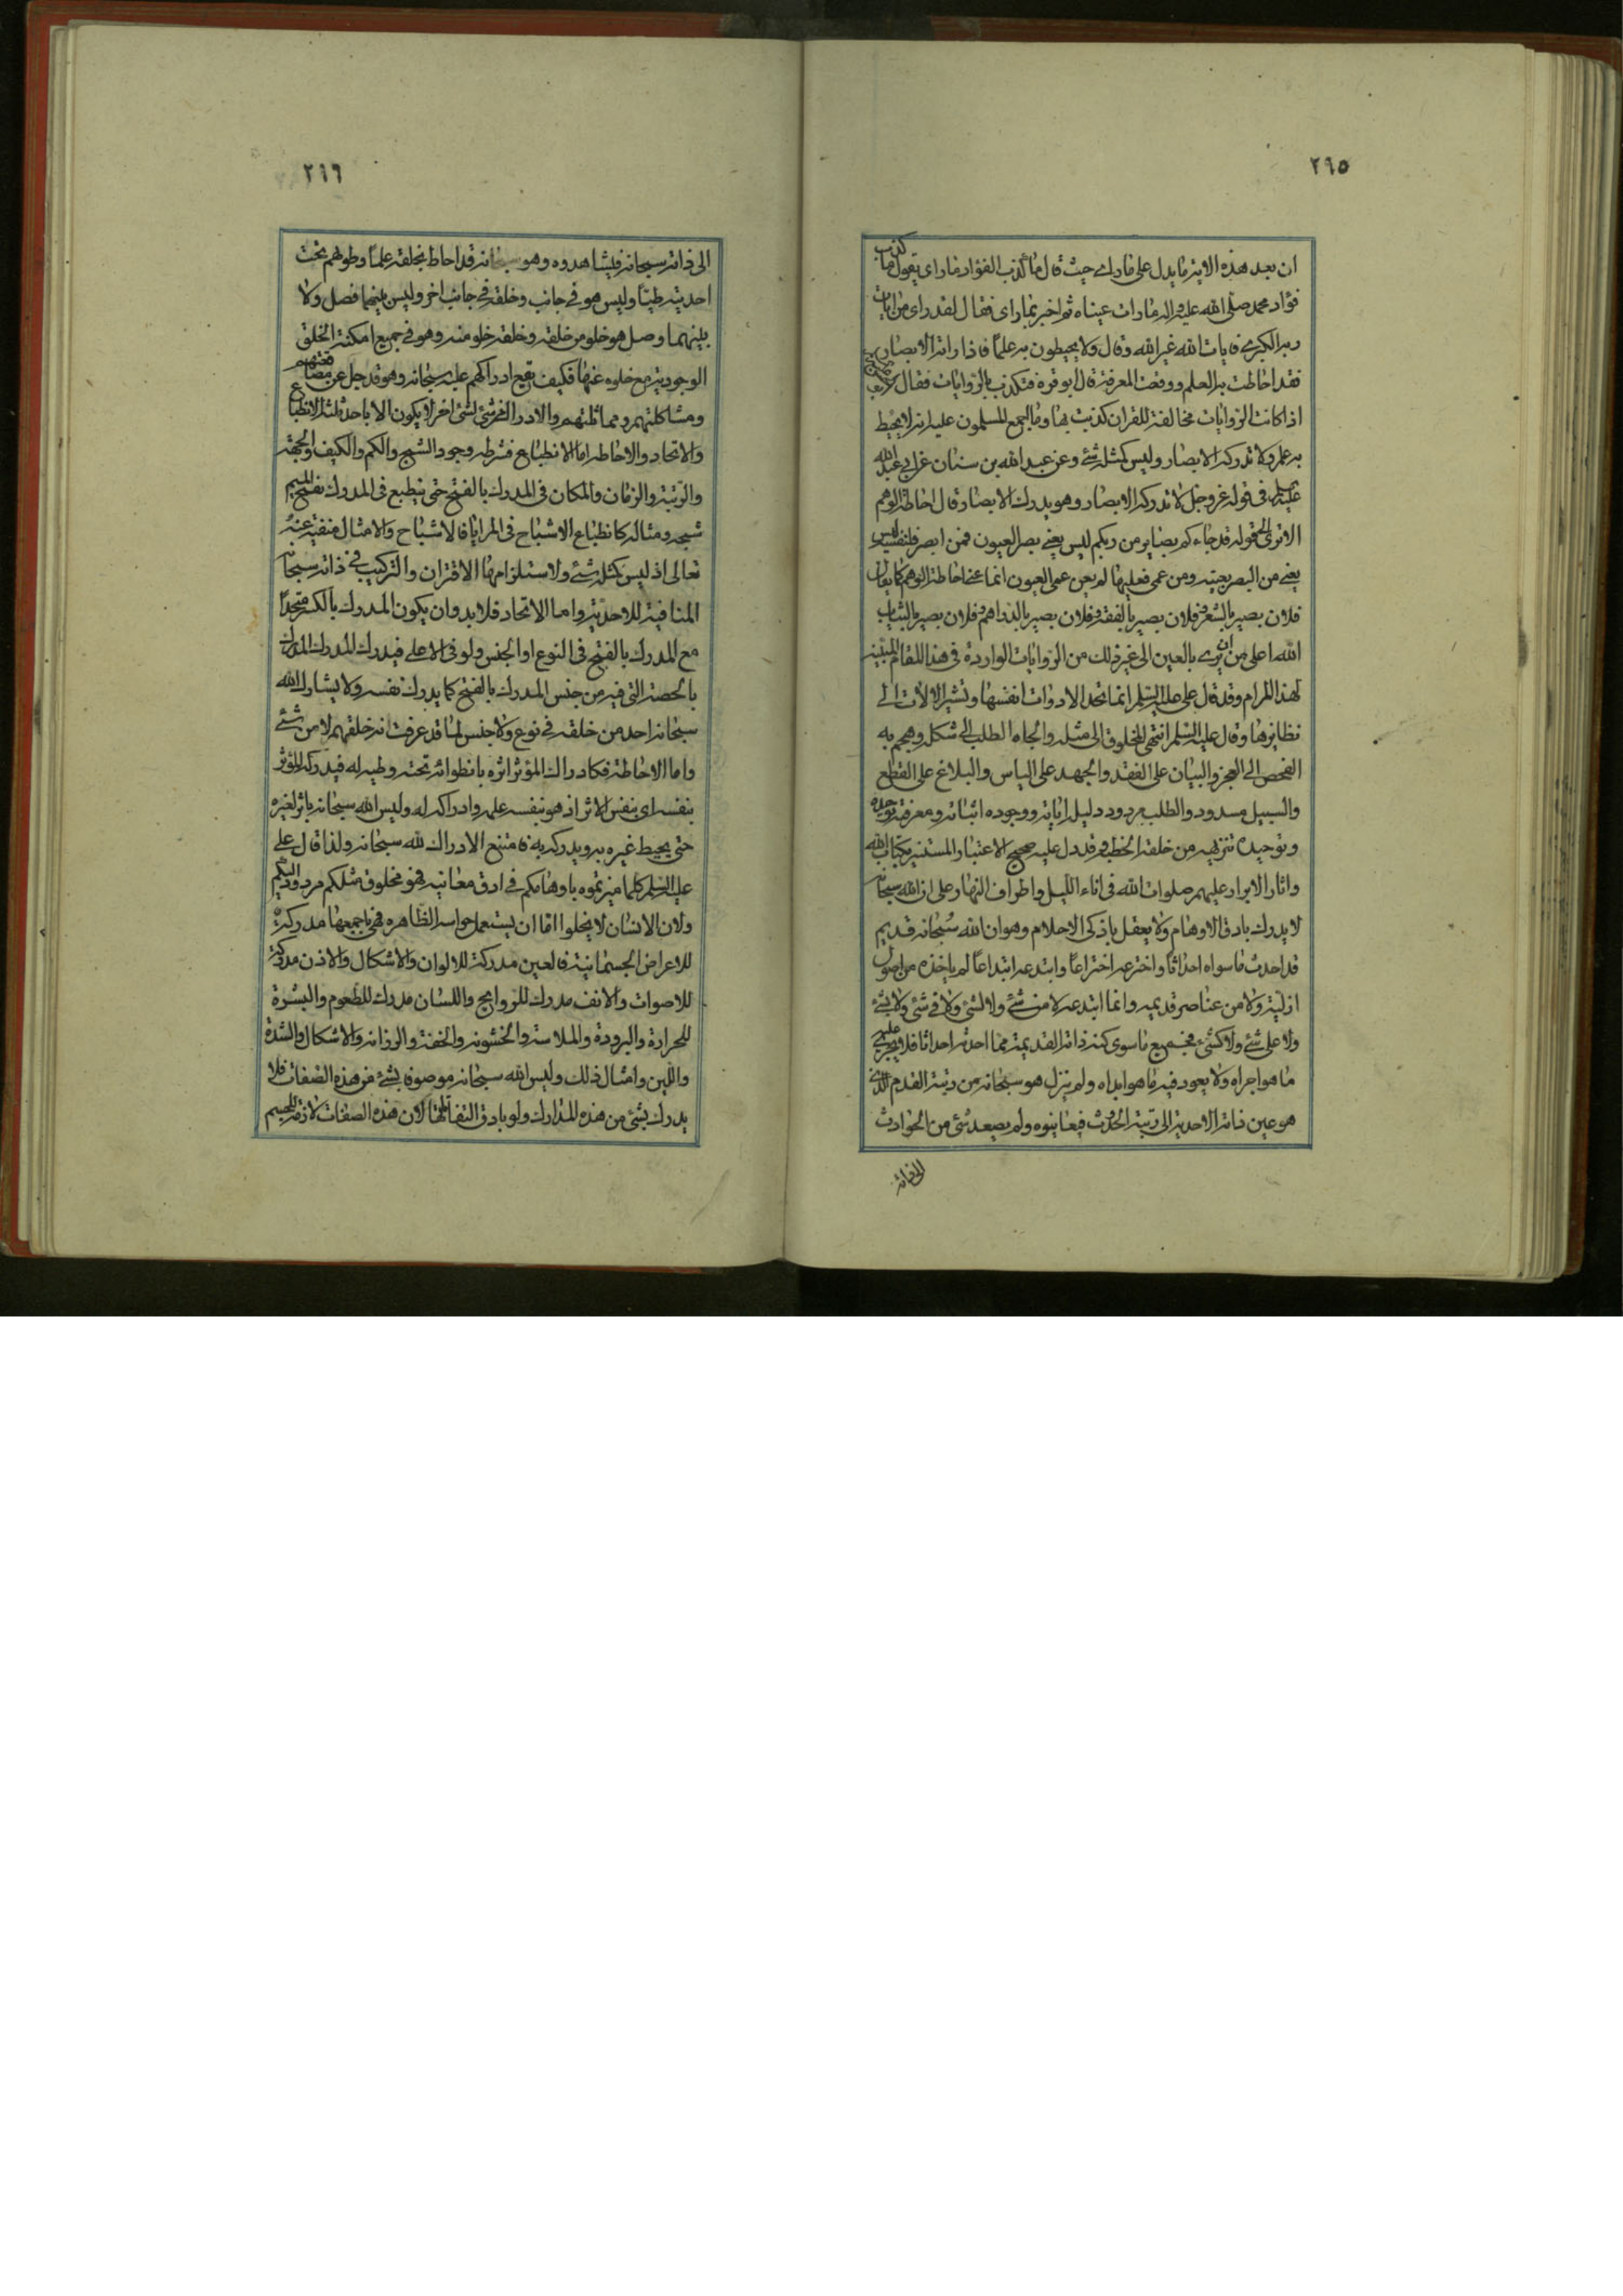 ٢٦٥
ان بعد هذه الاية ما يدل على ما راى حيث قال ما كذب الفؤاد ما راى يقول ما كذب
فؤاد محمد صلى الله عليه واله ما رات عيناه ثم اخبر بما راى فقال لقد راى من ايات
ربه الكبرى فايات الله غير الله وقال ولا يحيطون به علما فاذا راته الابصار
فقد احاطت به العلم ووقعت المعرفة قال ابو قرة فتكذب بالروايات فقال
اذا كانت الروايات مخالفة للقران كذبت بها وما اجمع المسلمون عليه انه لا يحيط
به علم ولا تدركه الابصار وليس كمثله شئ وعن عبد الله بن سنان عن ابي عبد الله
عليه السلم في قوله عز وجل لا تدركه الابصار وهو يدرك الابصار قال احاطة الوهم
الا ترى الى قوله قد جاءكم بصاير من ربكم ليس يعني بصر العيون فمن ابصر فلنفسه ليس
يعني من البصر بعينه ومن عمى فعليها لم يعن عمى العيون انما عنى احاطة الوهم كما يقال
فلان بصير بالشعر وفلان بصير بالفقه وفلان بصير بالدراهم وفلان بصير بالثياب
الله اعلى من ان يرى بالعين الى غير ذلك من الروايات الواردة في هذا المقام المبينة
لهذا المرام وقد قال على عليه السلم انما تحد الادوات انفسها وتشير الالات الى
نظايرها وقال عليه السلم انتهى المخلوق الى مثله والجاه الطلب الى شكله وهجم به
الفحص الى العجز والبيان على الفقد والجهد على الياس والبلاغ على القطع
والسبيل مسدود والطلب مردود دليله اياته ووجوده اثباته ومعرفته توحيده
وتوحيده تنزيهه من خلقه الخطبة وقد دل عليه صحيح الاعتبار المستنير بكتاب الله
واثار الابرار عليهم صلوات الله في اناء الليل واطراف النهار وعلى ان الله سبحانه
لا يدرك بادق الاوهام ولا يعقل باذكى الاحلام وهو ان الله سبحانه قديم
قد احدث ما سواه احداثا واخترعه اختراعا وابتدعه ابتداعا لم ياخذه من اصول
ازلية ولا من عناصر قديمية وانما ابتدعه لا من شئ ولا لشئ ولا في شئ ولا بشئ
ولا على شئ ولا كشئ فجميع ما سوى كنه ذاته القديمة مما احدثه احداثا فلا يجرى عليه
ما هو اجراه ولا يعود فيه ما هو ابداه ولم ينزل هو سبحانه من رتبة القدم الذى
هو عين ذاته الاحدية الى رتبة الحدث فيعاينوه ولم يصعد شئ من الحوادث
الى ذاته
٢٦٦
الى ذاته سبحانه فيشاهدوه وهو سبحانه قد احاط بخلقه علما وطوهم تحت
احديته طيا وليس هو في جانب وخلقه في جانب اخر وليس بينهما فصل ولا
بينهما وصل هو خلو من خلقه وخلقه خلو منه وهو في جميع امكنة الخلق
الوجودية مع خلوه عنها فكيف يقع ادراكهم عليه سبحانه وهو قد جل عن مصاقعتهم
ومشاكلتهم ومماثلتهم والادراك من شئ لشئ اخر لا يكون الا باحد ثلثة الانطباع
والاتحاد والاحاطة اما الانطباع فشرطه وجود الشبح والكم والكيف والجهة
والرتبة والزمان والمكان في المدرك بالفتح حتى ينطبع في المدرك
شبحه ومثاله كانطباع الاشباح في المرايا فالاشباح والامثال منفية عنه
تعالى اذ ليس كمثله شئ ولاستلزامها الاقتران والتركيب في ذاته سبحانه
المنافية للاحدية واما الاتحاد فلا بد وان يكون المدرك بالكسر متحدا
مع المدرك بالفتح في النوع او الجنس ولو في الاعلى فيدرك المدرك المدرك
بالحصة التي فيه من جنس المدرك بالفتح كما يدرك نفسه ولا يشارك الله
سبحانه احد من خلقه في نوع ولا جنس لما قد عرفت انه خلقهم لا من شئ
واما الاحاطة فكادراك المؤثر اثره بانطوائه تحته وطيه له فيدركه المؤثر
بنفسه اى بنفس الاثر اذ هو بنفسه علمه وادراكه له وليس الله سبحانه باثر لغيره
حتى يحيط غيره به ويدركه به فامتنع الادراك لله سبحانه ولذا قال على
عليه السلم كلما ميزتموه باوهامكم في ادق معانيه فهو مخلوق مثلكم مردود اليكم
ولان الانسان لا يخلوا اما ان يستعمل حواسه الظاهره فهى باجمعها مدركة
للاعراض الجسمانية فالعين مدركة للالوان والاشكال والاذن مدركة
للاصوات والانف مدرك للروايح واللسان مدرك للطعوم والبشرة
للحرارة والبرودة والملاسة والخشونه والخفة والرزانه والاشكال والشدة
واللين وامثال ذلك وليس الله سبحانه موصوفا بشئ من هذه الصفات فلا
يدرك بشئ من هذه المدارك ولو بادق التفاتها لان هذه الصفات لازمة للجسم